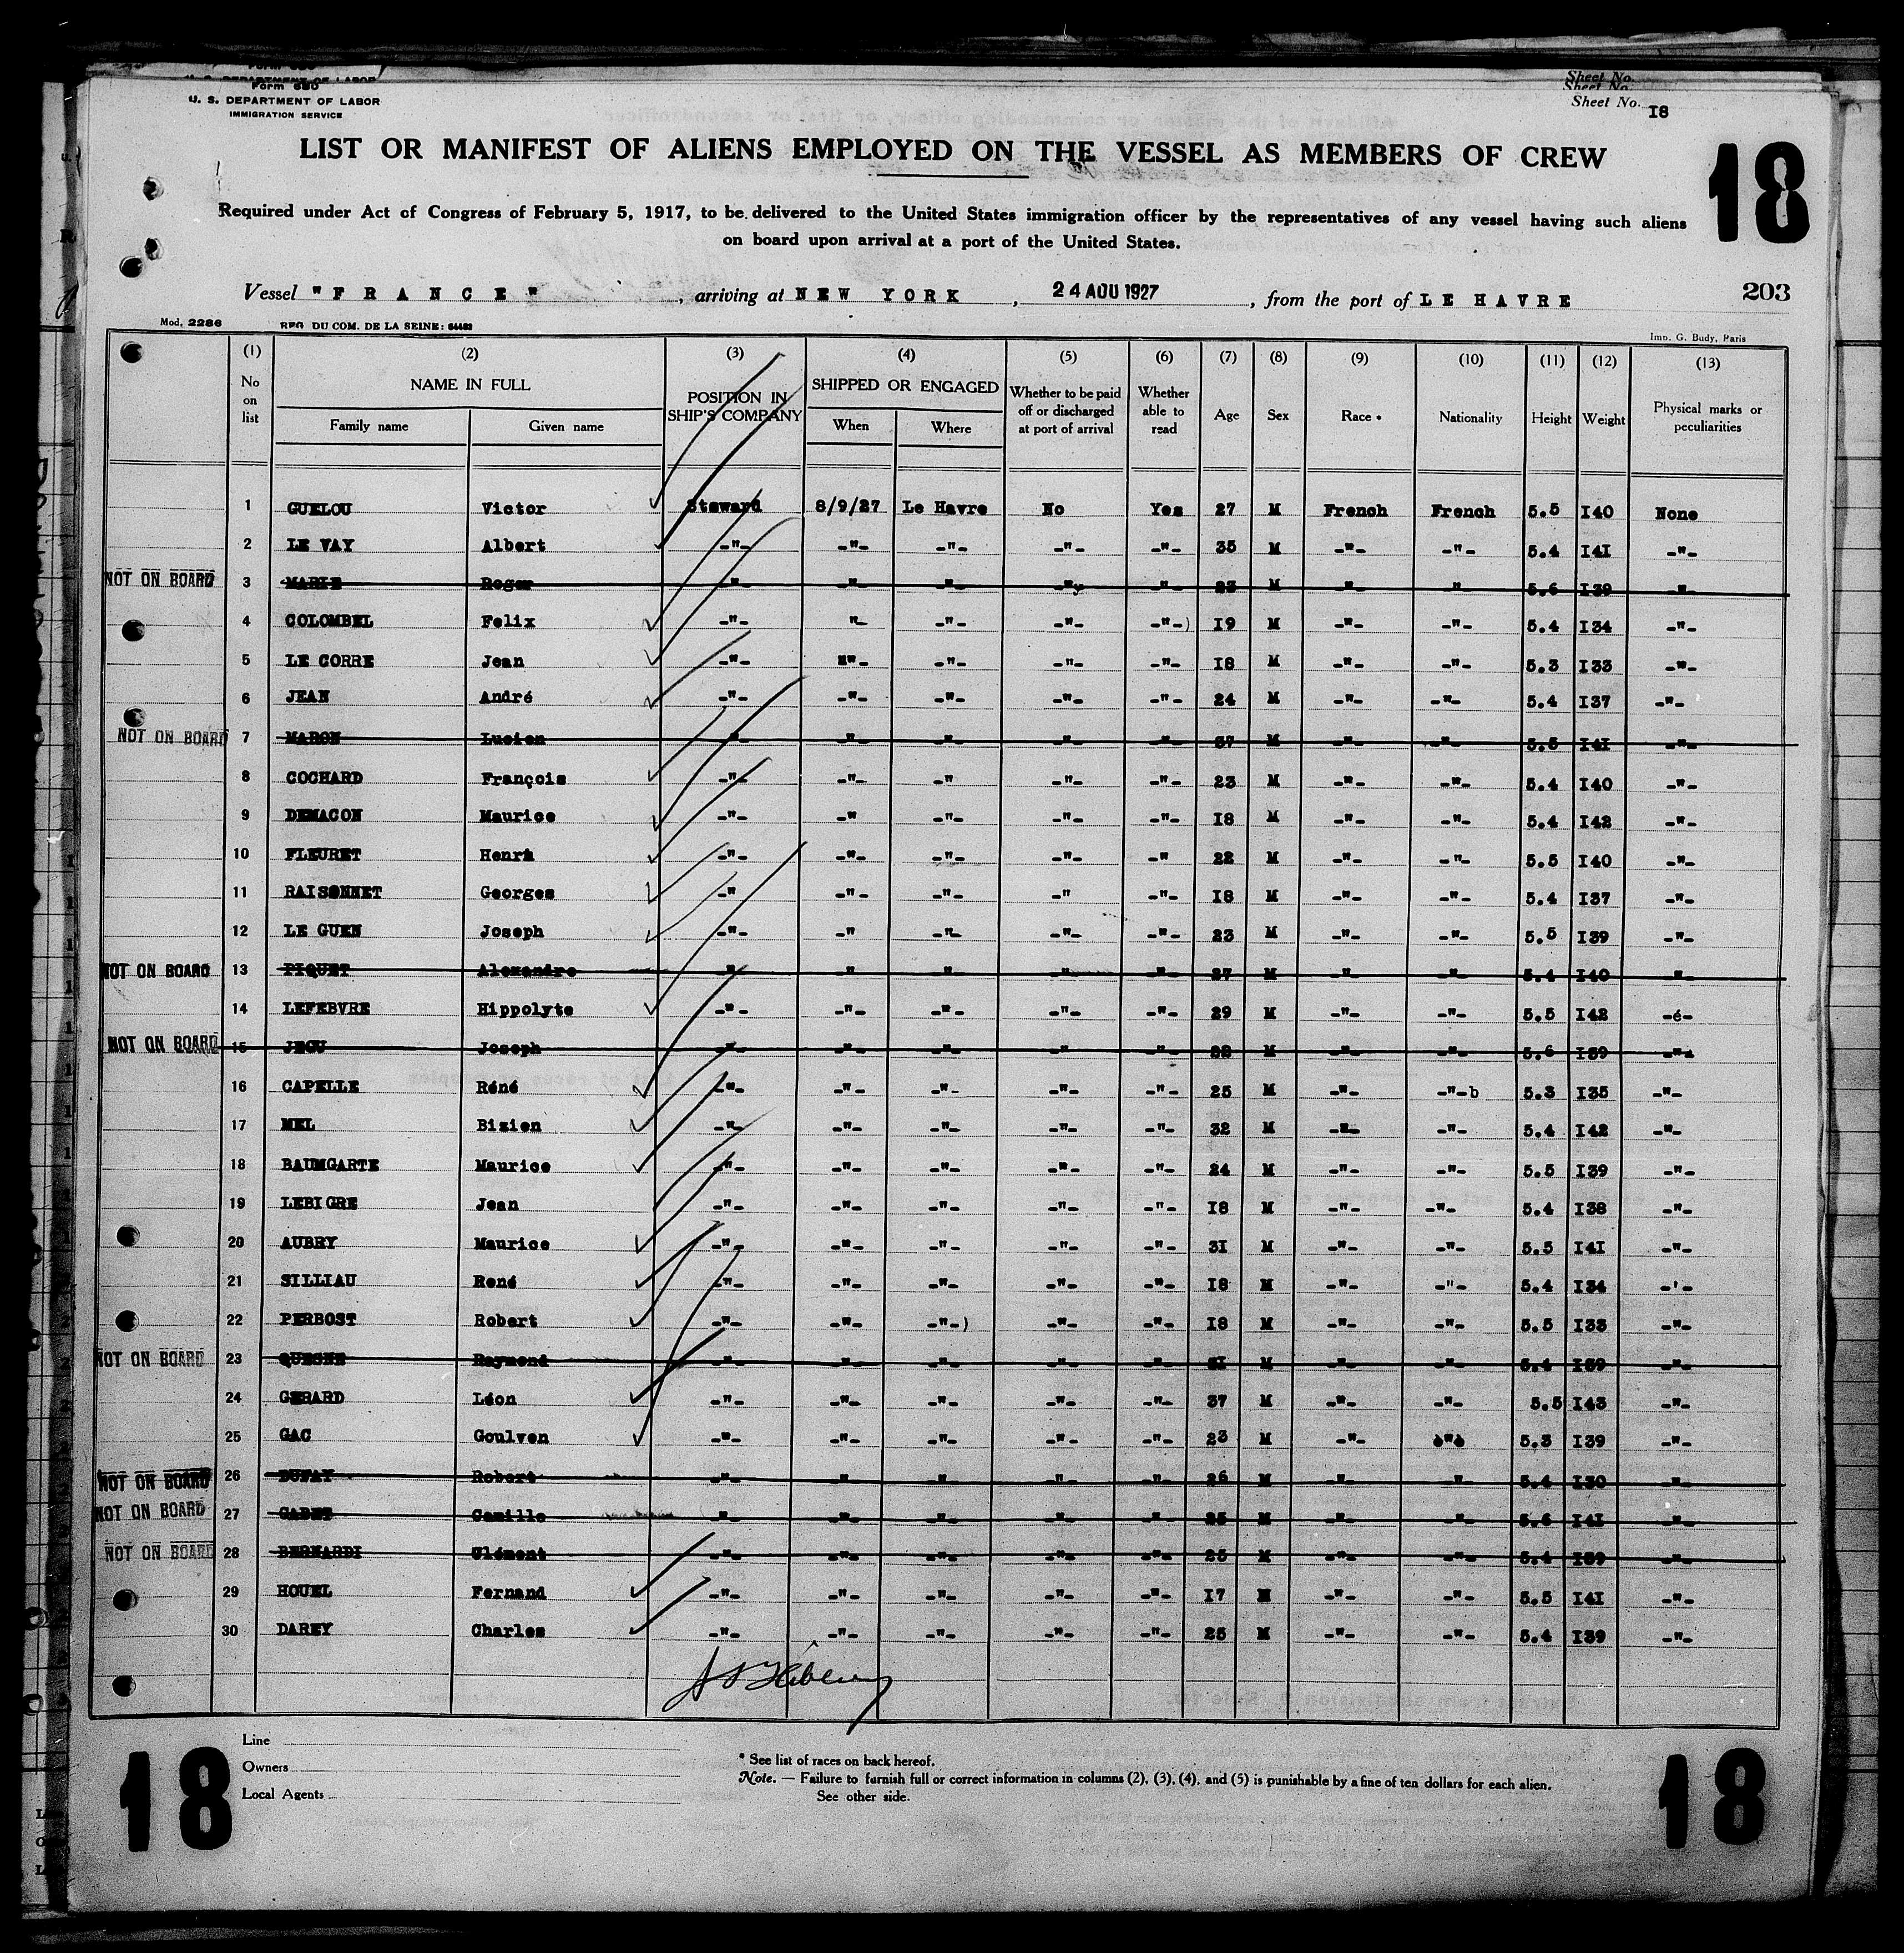 Form 680
U. S. DEPARTMENT OF LABOR
IMMIGRATION SERVICE
Sheet No.
Sheet No.
Sheet No. I8
LIST OR MANIFEST OF ALIENS EMPLOYED ON THE VESSEL AS MEMBERS OF CREW
18
Required under Act of Congress of February 5, 1917, to be delivered to the United States immigration officer by the representatives of any vessel having such aliens
on board upon arrival at a port of the United States.
Vessel "FRANCE", arriving at NEW YORK, 24 AOU 1927, from the port of LE HAVRE 203
Mod. 2286 REG DU COM. DE LA SEINE: Imp. G. Budy, Paris
(1) (2) (3) (4) (5) (6) (7) (8) (9) (10) (11) (12) (13)
No on list NAME IN FULL Family name Given name POSITION IN SHIP'S COMPANY SHIPPED OR ENGAGED When Where Whether to be paid off or discharged at port of arrival Whether able to read Age Sex Race * Nationality Height Weight Physical marks or peculiarities
1 GUELOU Victor Steward 8/9/27 Le Havre No Yes 27 M French French 5.5 I40 None
2 LE VAY Albert -"- -"- -"- -"- -"- 35 M -"- -"- 5.4 I4I -"-
NOT ON BOARD 3 MARIE Roger -"- -"- -"- -"- -"- 23 M -"- -"- 5.6 I39 -"-
4 COLOMBEL Felix -"- "- -"- -"- -"-) I9 M -"- -"- 5.4 I34 -"-
5 LE CORRE Jean -"- "- -"- -"- -"- I8 M -"- -"- 5.3 I33 -"-
6 JEAN André -"- -"- -"- -"- -"- 24 M -"- -"- 5.4 I37 -"-
NOT ON BOARD 7 MARON Lucien -"- -"- -"- -"- -"- 37 M -"- -"- 5.5 I4I -"-
8 COCHARD François -"- -"- -" -"- -"- 23 M -"- -"- 5.4 I40 -"-
9 DEMACON Maurice -"- -" -"- -"- -"- I8 M -"- -"- 5.4 I42 -"-
10 FLEURET Henri -"- -"- -"- -"- -" 22 M -"- -"- 5.5 I40 -"-
11 RAISONNET Georges -" -"- -"- -" -"- I8 M -"- -"- 5.4 I37 -"-
12 LE GUEN Joseph -"- -" -"- -"- -"- 23 M -"- -"- 5.5 I39 -"-
NOT ON BOARD 13 PIQUET Alexandre -"- -"- -"- -"- -"- 27 M -"- -"- 5.4 I40 -"-
14 LEFEBVRE Hippolyte -"- -"- -"- -"- -"- 29 M -"- -"- 5.5 I42 -6-
NOT ON BOARD 15 JEGU Joseph -"- -"- -"- -"- -"- 22 M -"- -"- 5.6 I39 -"-
16 CAPELLE Réné -"- -"- -"- -"- -"- 25 M -"- -"-b 5.3 I35 -"-
17 MEL Bizien -"- -"- -"- -"- -"- 32 M -"- -"- 5.4 I42 -"-
18 BAUMGARTE Maurice -"- -"- -"- -"- -"- 24 M -"- -"- 5.5 I39 -"-
19 LEBIGRE Jean -"- -"- -"- -"- -"- I8 M -"- -"- 5.4 I38 -"-
20 AUBRY Maurice -"- -"- -"- -"- -"- 3I M -"- -"- 5.5 I4I -"-
21 SILLIAU René -"- -"- -"- -"- -"- I8 M -"- -"- 5.4 I34 -'-
22 PERBOST Robert -"- -"- -"-) -"- -"- I8 M -"- -"- 5.5 I33 -"-
NOT ON BOARD 23 QUESNE Raymond -"- -"- -"- -"- -"- M -"- -"- 5.4 I39 -"-
24 GERARD Léon -"- -"- -"- -"- -"- 37 M -"- -"- 5.5 I43 -"-
25 GAC Goulven -"- -"- -"- -"- -"- 23 M -"- "- 5.3 I39 -"-
NOT ON BOARD 26 DUFAY Robert -"- -"- -"- -"- -"- 26 M -"- -"- 5.4 I30 -"-
NOT ON BOARD 27 GABET Camille -"- -"- -"- -"- -"- 25 M -"- -"- 5.6 I4I -"-
NOT ON BOARD 28 BERNARDI Clément -"- -"- -"- -"- -"- 25 M -"- -"- 5.4 I39 -"-
29 HOUEL Fernand -"- -"- -"- -"- -"- I7 M -"- -"- 5.5 I4I -"-
30 DAREY Charles -"- -"- -"- -"- -"- 25 M -"- -"- 5.4 I39 -"-
Line
Owners
Local Agents
* See list of races on back hereof.
Note. — Failure to furnish full or correct information in columns (2), (3), (4), and (5) is punishable by a fine of ten dollars for each alien.
See other side.
18
18